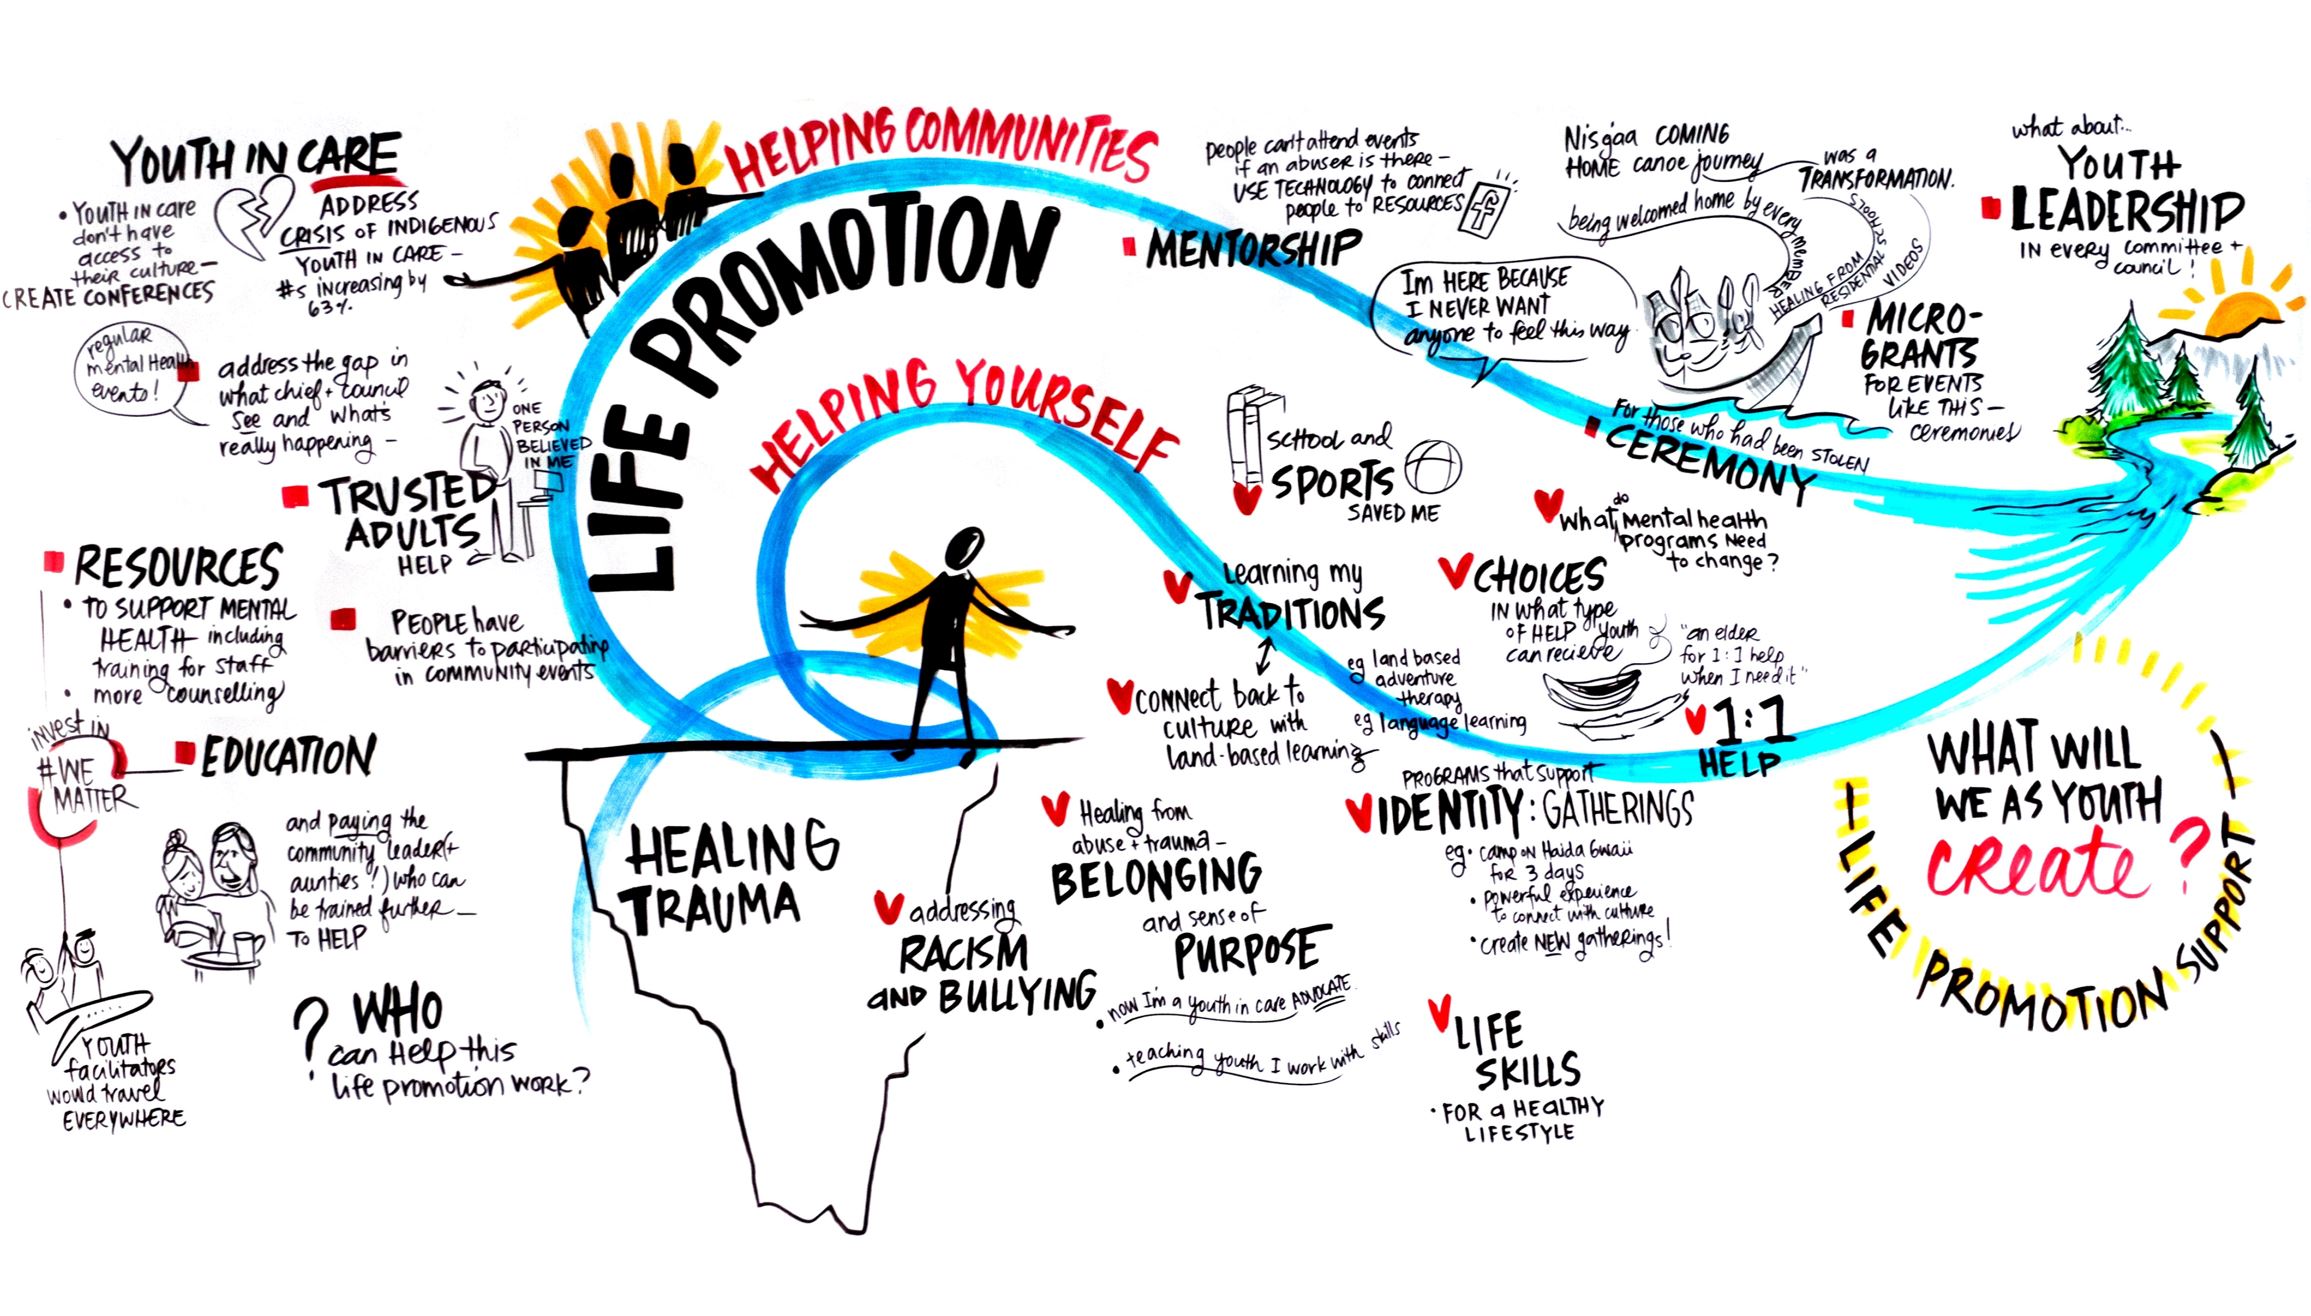 YOUTH IN CARE
• YOUTH IN care
don't have
access to
their culture —
CREATE CONFERENCES
ADDRESS
CRISIS OF INDIGENOUS
YOUTH IN CARE —
#s increasing by
63%
regular
mental Health
events!
address the gap in
what chief + council
see and what's
really happening —
ONE
PERSON
BELIEVED
IN ME
TRUSTED
ADULTS
HELP
RESOURCES
• TO SUPPORT MENTAL
HEALTH including
training for staff
• more counselling
PEOPLE have
barriers to participating
in community events
invest in
#WE
MATTER
EDUCATION
and paying the
community leader(+
aunties!) who can
be trained further —
TO HELP
YOUTH
facilitators
would travel
EVERYWHERE
? WHO
can Help this
life promotion WORK?
HELPING COMMUNITIES
LIFE PROMOTION
HELPING YOURSELF
HEALING
TRAUMA
addressing
RACISM
AND BULLYING
people can't attend events
if an abuser is there —
USE TECHNOLOGY to connect
people to RESOURCES
f
MENTORSHIP
I'm HERE BECAUSE
I NEVER WANT
anyone to feel this way
Nisgaa COMING
HOME canoe journey
was a
TRANSFORMATION.
being welcomed home by every member
HEALING FROM
RESIDENTIAL SCHOOLS
VIDEOS
For those who had been STOLEN
CEREMONY
what about...
YOUTH
LEADERSHIP
IN every committee +
council!
MICRO-
GRANTS
FOR EVENTS
LIKE THIS —
ceremonies
SCHOOL and
SPORTS
SAVED ME
Learning my
TRADITIONS
CONNECT back to
culture with
land-based learning
What do mental health
programs need
to change?
CHOICES
IN what type
OF HELP youth
can recieve
eg land based
adventure
therapy
eg language learning
"an elder
for 1:1 help
when I need it"
1:1
HELP
Healing from
abuse + trauma —
BELONGING
and sense of
PURPOSE
• now I'm a youth in care ADVOCATE.
• teaching youth I work with skills
PROGRAMS that support
IDENTITY: GATHERINGS
eg • camp on Haida Gwaii
for 3 days
• powerful experience
to connect with culture
• create NEW gatherings!
LIFE
SKILLS
• FOR a HEALTHY
LIFESTYLE
WHAT WILL
WE AS YOUTH
create?
— LIFE PROMOTION SUPPORT —